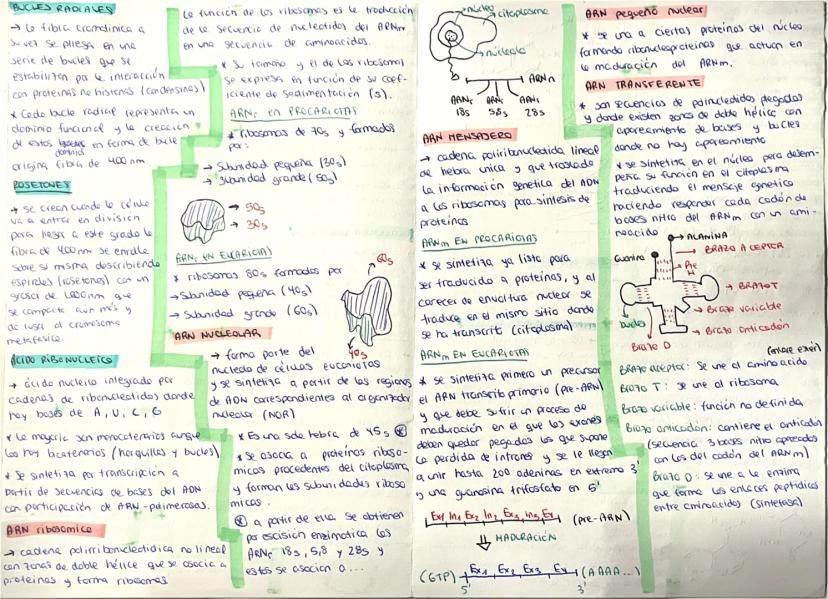 BUCLES RADIALES
→ La fibra cromatínica a
su vez se pliega en una
serie de bucles que se
estabilizan por la interacción
con proteínas no histonas (condensinas)
* Cada bucle radial representa un
dominio funcional y la creación
de estos en forma de bucle
dominios
origina fibra de 400 nm
ROSETONES
→ se crean cuando la célula
va a entrar en división
para llegar a este grado la
fibra de 400nm se enrolla
sobre sí misma describiendo
espirales (rosetones) con un
grosor de que
se compacta aun más y
da lugar al cromosoma
metafásico.
ÁCIDO RIBONUCLEICO
→ ácido nucleico integrado por
cadenas de ribonucleotidos donde
hay bases de A, U, C, G
* La mayoría son monocatenarios aunque
los hay bicatenarios (horquillas y bucles)
* Se sintetiza por transcripción a
partir de secuencias de bases del ADN
con participación de ARN-polimerasas.
ARN ribosomico
→ cadena polirribonucleotidica no lineal
con zonas de doble hélice que se asocia a
proteínas y forma ribosomas
La función de los ribosomas es la traducción
de la secuencia de nucleotidos del ARNm
en una secuencia de aminoacidos.
* Su tamaño y el de los ribosomas
se expresa en función de su coef-
iciente de sedimentación (S).
ARNr EN PROCARIOTAS
* ribosomas de 70s y formados
por:
→ Subunidad pequeña (30s)
→ subunidad grande (50s)
→ 50s
→ 30s
ARNr EN EUCARIOTAS
* ribosomas 80s formados por
→ Subunidad pequeña (40s)
→ Subunidad grande (60s)
60s
40s
ARN NUCLEOLAR
→ forma parte del
nucleolo de células eucariotas
y se sintetiza a partir de las regiones
de ADN correspondientes al organizador
nucleolar (NOR)
* Es una sola hebra de 45s
* se asocia a proteínas riboso-
micas procedentes del citoplasma
y forman las subunidades riboso
micas.
a partir de ella se obtienen
por escisión enzimatica los
ARNr 18s, 5,8 y 28s y
estos se asocian a...
núcleo
citoplasma
núcleolo
ARNn
ARNr ARNr ARNr
18s 5,8s 28s
ARN MENSAJERO
→ cadena poliribonucleotida lineal
de hebra unica y que traslada
la información genetica del ADN
a los ribosomas para síntesis de
proteínas
ARNm EN PROCARIOTAS
* se sintetiza ya listo para
ser traducido a proteínas, y al
carecer de envoltura nuclear se
traduce en el mismo sitio donde
se ha transcrit (citoplasma)
ARNm EN EUCARIOTAS
* se sintetiza primero un precursor
el ARN transcrito primario (pre-ARN)
y que debe sufrir un proceso de
maduración en el que los exones
deben quedar pegados lo que supone
la perdida de intrones y se le llegan
a unir hasta 200 adeninas en extremo 3'
y una guanosina trifosfato en 5'
Ex1 In1 Ex2 In2 Ex3 In3 Ex4 (pre-ARN)
MADURACIÓN
(GTP) Ex1 Ex2 Ex3 Ex4 (AAAA...)
5' 3'
ARN pequeño nuclear
* se une a ciertas proteínas del núcleo
formando ribonucleoproteinas que actuan en
la maduración del ARNm.
ARN TRANSFERENTE
* son secuencias de plegados
y donde existen zonas de doble hélice con
apareamiento de bases y bucles
donde no hay apareamiento
* se sintetiza en el núcleo pero desem-
peña su función en el citoplasma
traduciendo el mensaje genetico
haciendo responder cada codón de
bases nitro del ARNm con un ami-
noacido
→ ALANINA
Guanina
→ BRAZO ACEPTOR
→ BRAZO T
→ Brazo variable
→ Brazo anticodón
Bucles
BRAZO D
Brazo aceptor: se une al aminoacido
Brazo T: se une al ribosoma
Brazo variable: función no definida
Brazo anticodón: contiene el anticodón
(secuencia 3 bases nitro apareadas
con las del codón del ARNm)
Brazo D: se une a la enzima
que forma los enlaces peptidicos
entre aminoacidos (sintetasa)